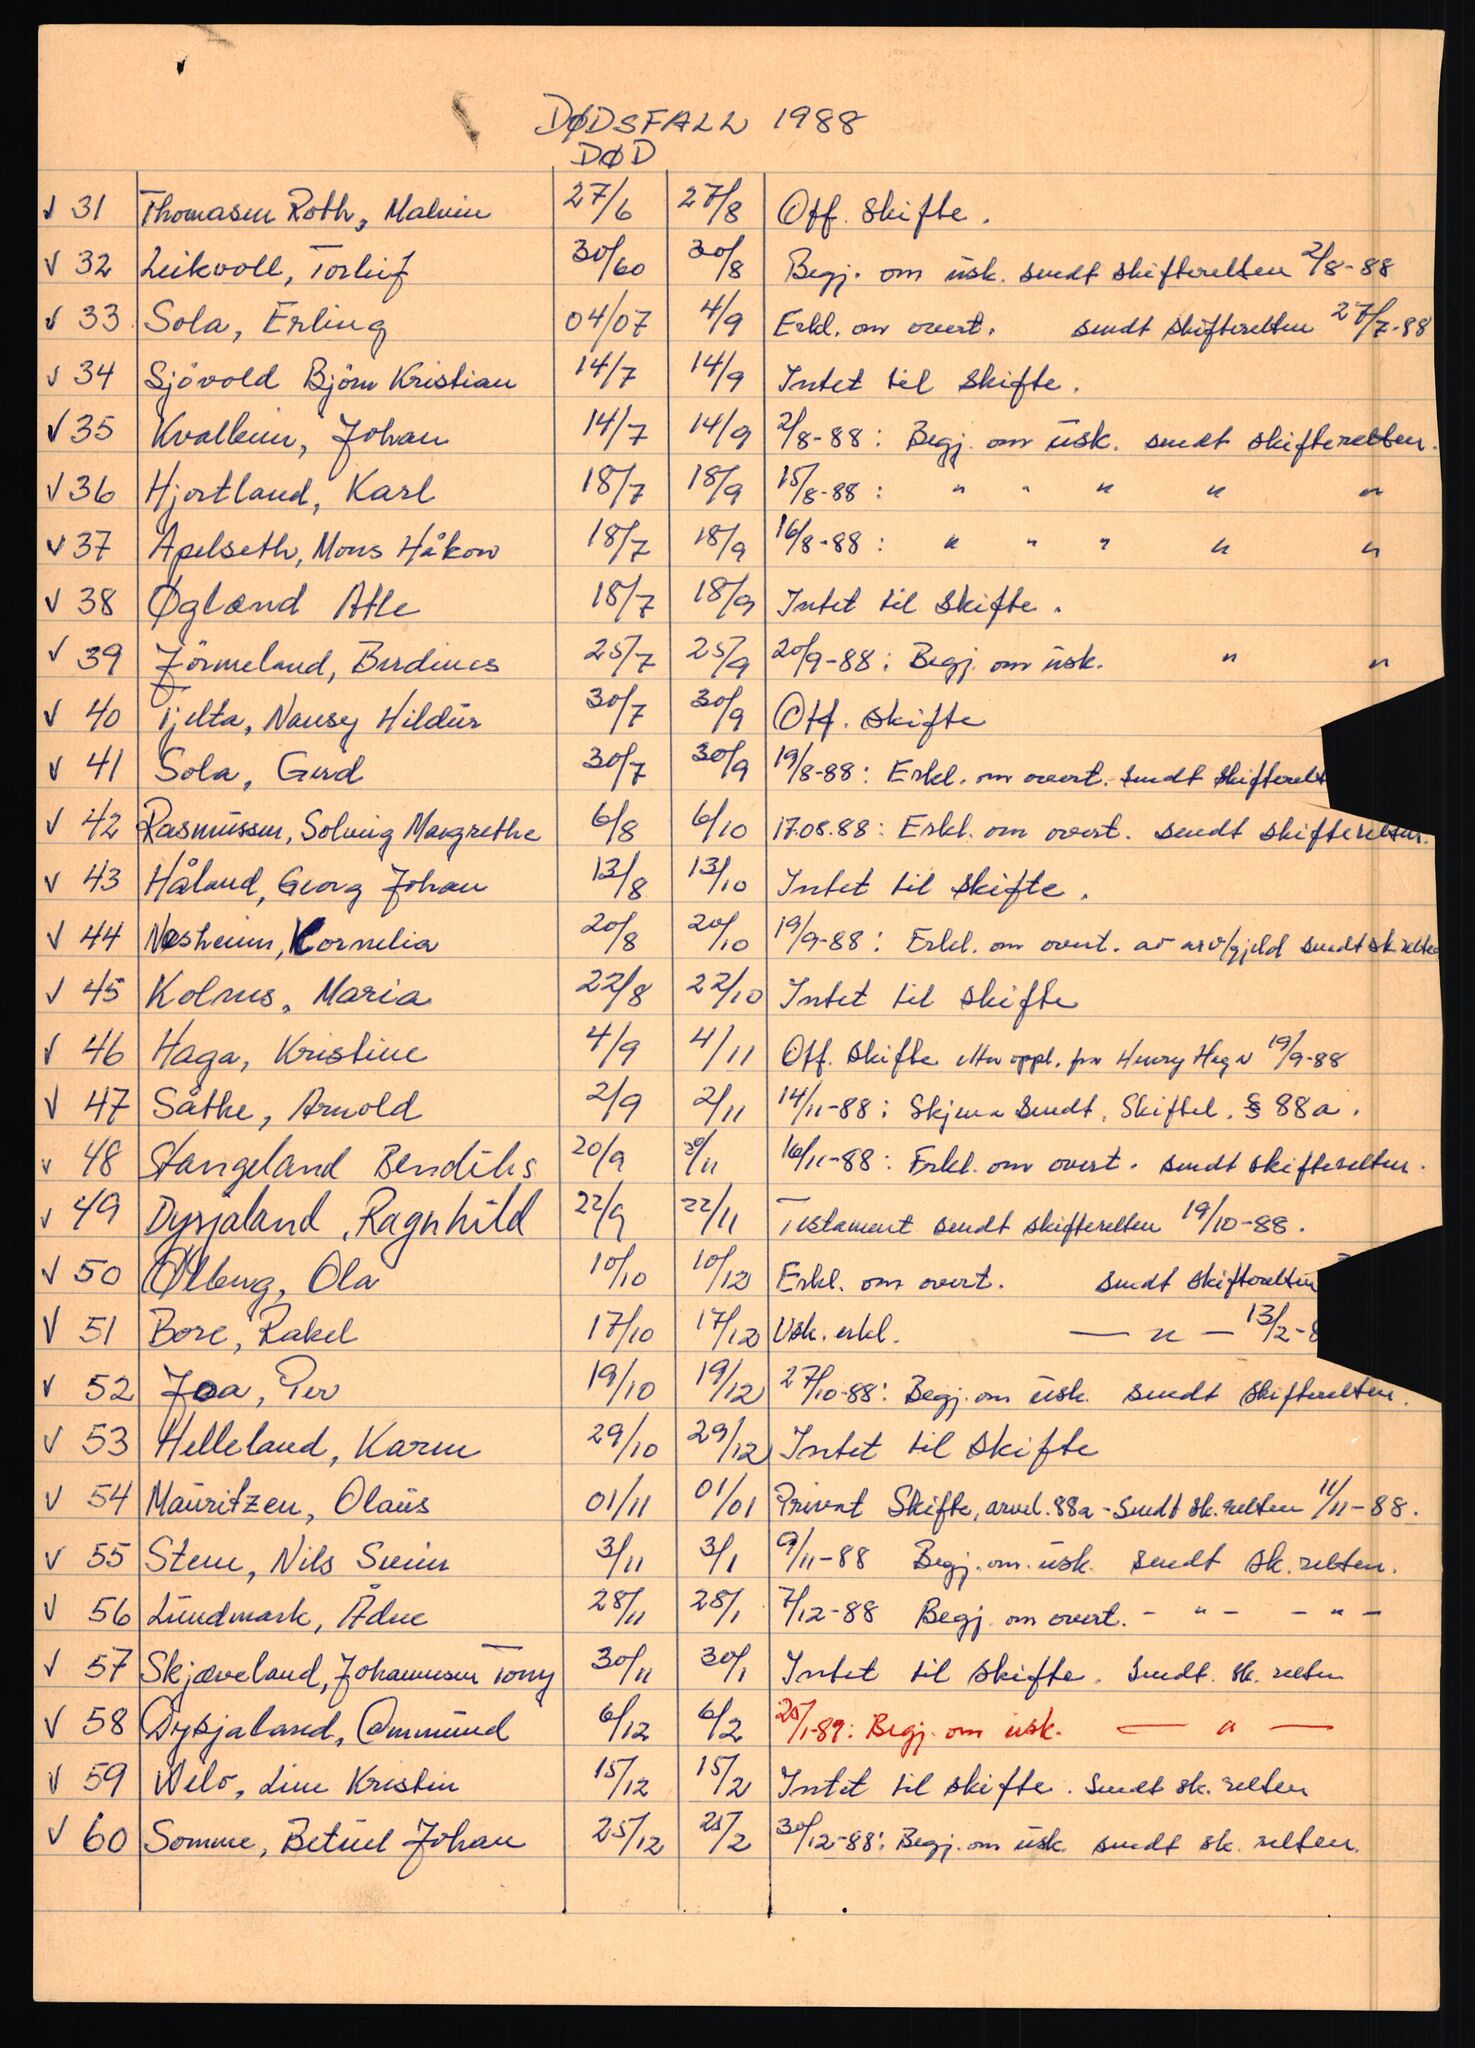 DØDSFALL 1988
DØD
√ 31 Thomasen Roth, Malvin 27/6 27/8 Off. skifte.
√ 32 Leikvoll, Torleif 30/60 30/8 Begj. om üsk. sendt skifteretten 2/8-88
√ 33 Sola, Erling 04/07 4/9 Erkl. om overt. sendt skifteretten 27/7-88
√ 34 Sjövold Björn Kristian 14/7 14/9 Intet til skifte.
√ 35 Kvalheim, Johan 14/7 14/9 2/8-88: Begj. om üsk. sendt skifteretten.
√ 36 Hjortland, Karl 18/7 18/9 15/8-88: " " " " "
√ 37 Apelseth, Mons Håkon 18/7 18/9 16/8-88: " " " " "
√ 38 Øgland Atle 18/7 18/9 Intet til skifte.
√ 39 Jörmeland, Berdines 25/7 25/9 20/9-88: Begj. om üsk. " "
√ 40 Tjelta, Nancy Hildür 30/7 30/9 Off. skifte
√ 41 Sola, Gerd 30/7 30/9 19/8-88: Erkl. om overt. sendt skifteret
√ 42 Rasmüssen, Solveig Margrethe 6/8 6/10 17.08.88: Erkl. om overt. sendt skifteretten.
√ 43 Håland, Georg Johan 13/8 13/10 Intet til skifte.
√ 44 Nesheim, Kornelia 20/8 20/10 19/9-88: Erkl. om overt. av arv/gjeld sendt sk.retten
√ 45 Kolnes, Maria 22/8 22/10 Intet til skifte
√ 46 Haga, Kristine 4/9 4/11 Off. skifte etter oppl. fra Henry 19/9-88
√ 47 Såthe, Arnold 2/9 2/11 14/11-88: Skjema sendt. Skiftel. § 88a.
√ 48 Stangeland Bendiks 20/9 20/11 16/11-88: Erkl. om overt. sendt skifteretten.
√ 49 Dysjaland, Ragnhild 22/9 22/11 Testament sendt skifteretten 19/10-88.
√ 50 Ølberg, Ola 10/10 10/12 Erkl. om overt. sendt skifteretten
√ 51 Bore, Rakel 17/10 17/12 Usk. erkl. — " — 13/2-8
√ 52 Joa, Per 19/10 19/12 27/10-88: Begj. om üsk. sendt skifteretten.
√ 53 Helleland, Karen 29/10 29/12 Intet til skifte
√ 54 Maüritzen, Olaüs 01/11 01/01 Privat Skifte, arvel. 88a - Sendt sk.retten 11/11-88.
√ 55 Stene, Nils Svein 3/11 3/1 9/11-88 Begj. om üsk. sendt sk.retten.
√ 56 Lündmark, Ådne 28/11 28/1 7/12-88 Begj. om overt. - " - - " -
√ 57 Skjæveland, Johannesen Tony 30/11 30/1 Intet til skifte. Sendt sk.retten
√ 58 Dysjaland, Ommünd 6/12 6/2 25/1-89: Begj. om üsk. — " —
√ 59 Welo, Line Kristin 15/12 15/2 Intet til skifte. Sendt sk.retten
√ 60 Somme, Betüel Johan 25/12 25/2 30/12-88: Begj. om üsk. sendt sk.retten.